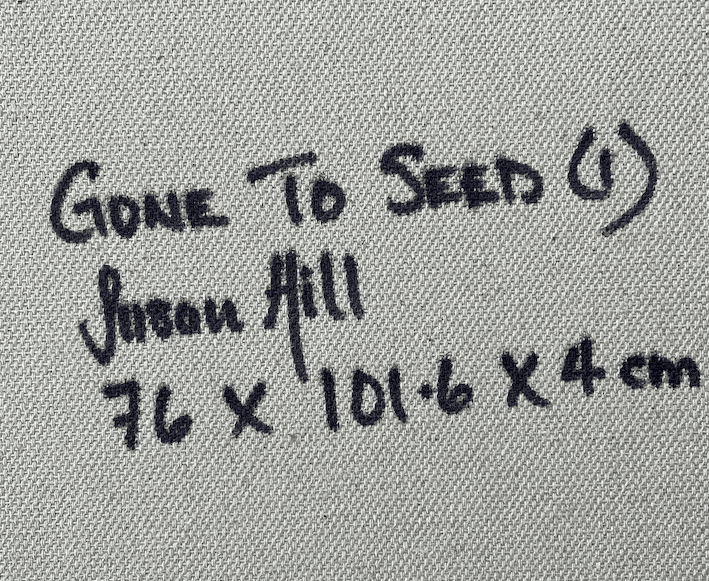 GONE TO SEED (1)
Susan Hill
76 X 101.6 X 4 cm